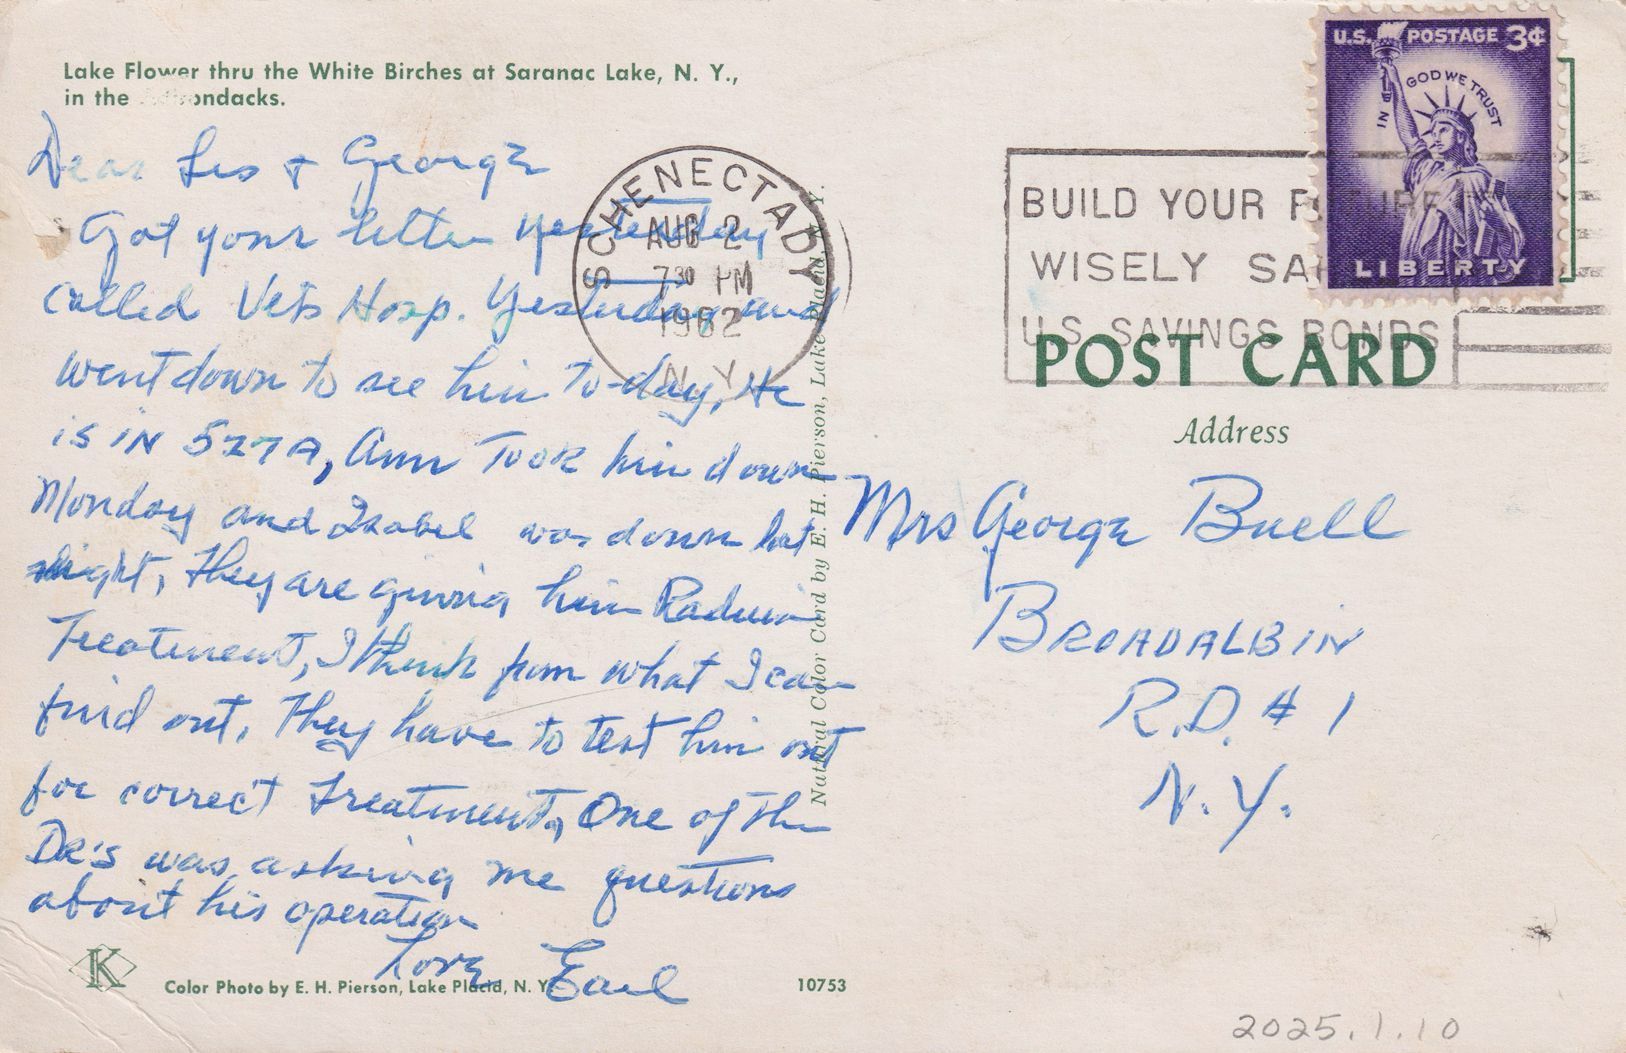 Lake Flower thru the White Birches at Saranac Lake, N. Y.,
in the Adirondacks.
Dear Les + George
Got your letter yesterday
called Vets Hosp. Yesterday and
went down to see him to-day, He
is in 577A, Ann Took him down
Monday and Isabel was down last
night, They are giving him Radium
Treatment, I think from what I can
find out, They have to test him out
for correct Treatment, One of the
DR's was asking me questions
about his operation
Love Earl
K
Color Photo by E. H. Pierson, Lake Placid, N. Y.
10753
Natural Color Card by E. H. Pierson, Lake Placid, N. Y.
SCHENECTADY
AUG 2
730 PM
1962
N.Y.
BUILD YOUR FUTURE
WISELY SA
U.S. SAVINGS BONDS
U.S. POSTAGE 3¢
IN GOD WE TRUST
LIBERTY
POST CARD
Address
Mrs George Buell
BROADALBIN
R.D. # 1
N.Y.
2025.1.10